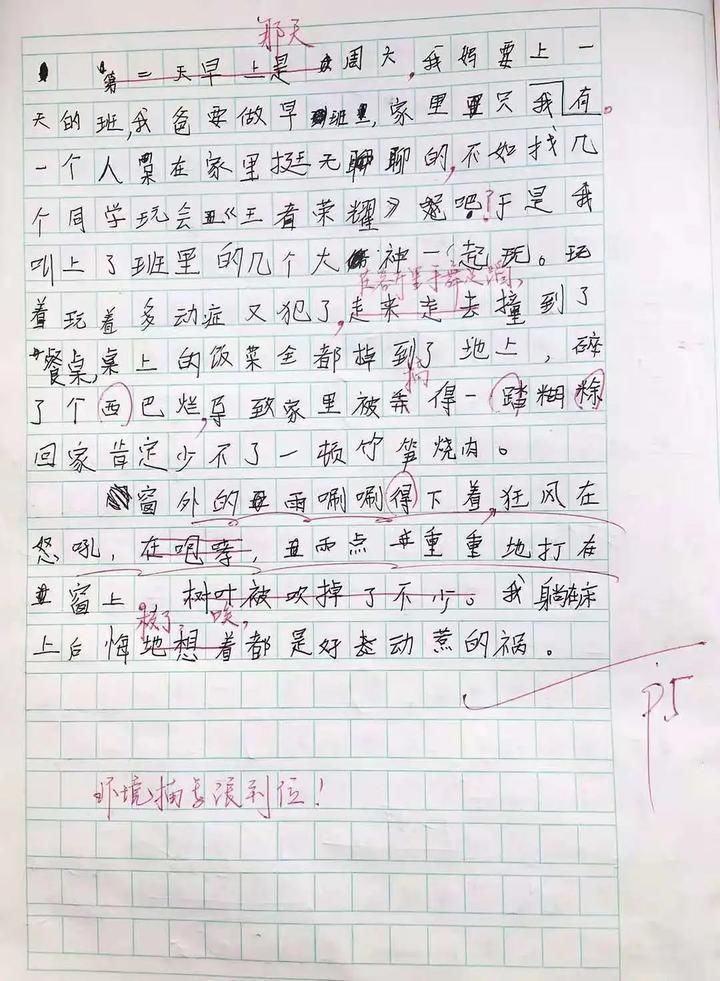 那天
第二天早上是周六,我妈要上一
天的班,我爸要做早班,家里只我有。
一个人在家里挺无聊的,不如找几
个同学玩会《王者荣耀》吧!于是我
叫上了班里的几个大神一起玩。玩
着玩着多动症又犯了,走来走去撞到了
餐桌,桌上的饭菜全都掉到了地上,碎
了个西巴烂,导致家里被弄得一踏糊
回家肯定少不了一顿竹笋烧肉。
窗外的雨唰唰得下着,狂风在
怒吼,在咆哮,雨点重重地打在
窗上 树叶被吹掉了不少。我躺在床
唉,
上后悔地想着都是好动惹的祸。
环境描写很到位!